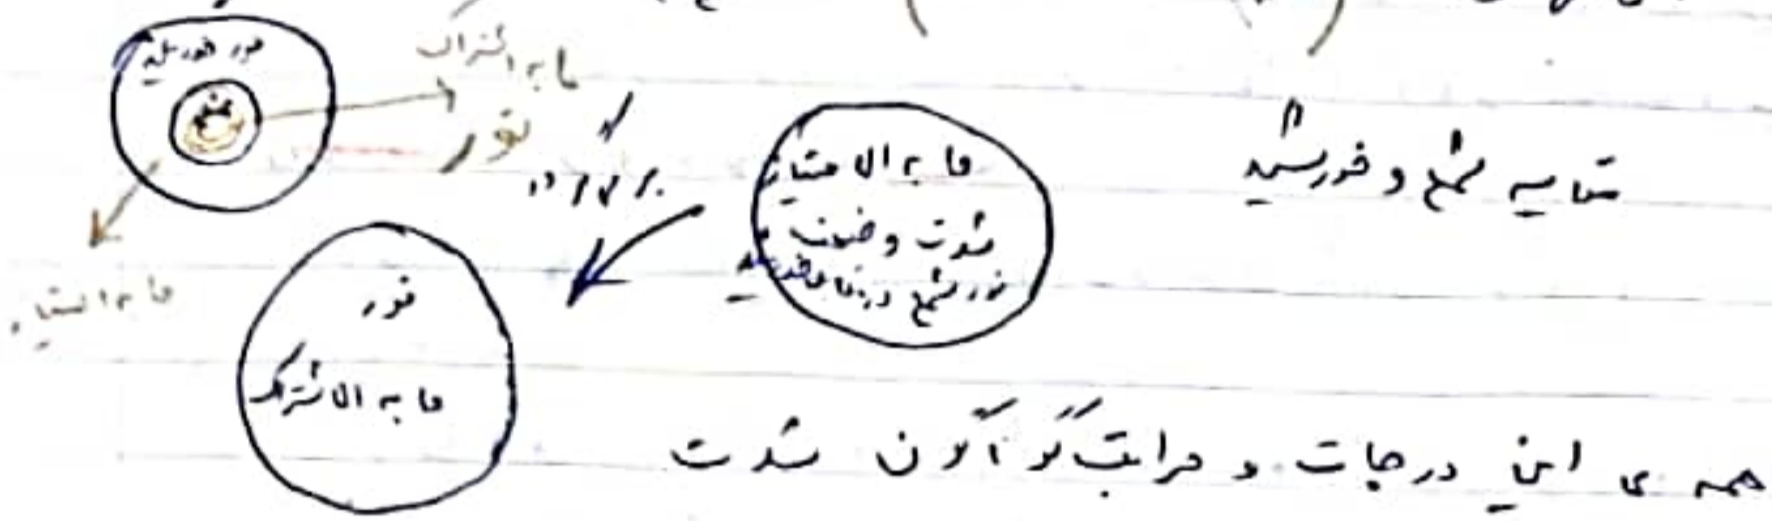 نور خورشید
شمع
ما به اشتراک
نور
ما به امتیاز
مقایسه شمع و خورشید
ما به الامتیاز
شدت و ضعف
نور شمع در مقابل خورشید
بر می گردد
نور
ما به الاشتراک
همه ی این درجات و مراتب گوناگون شدت